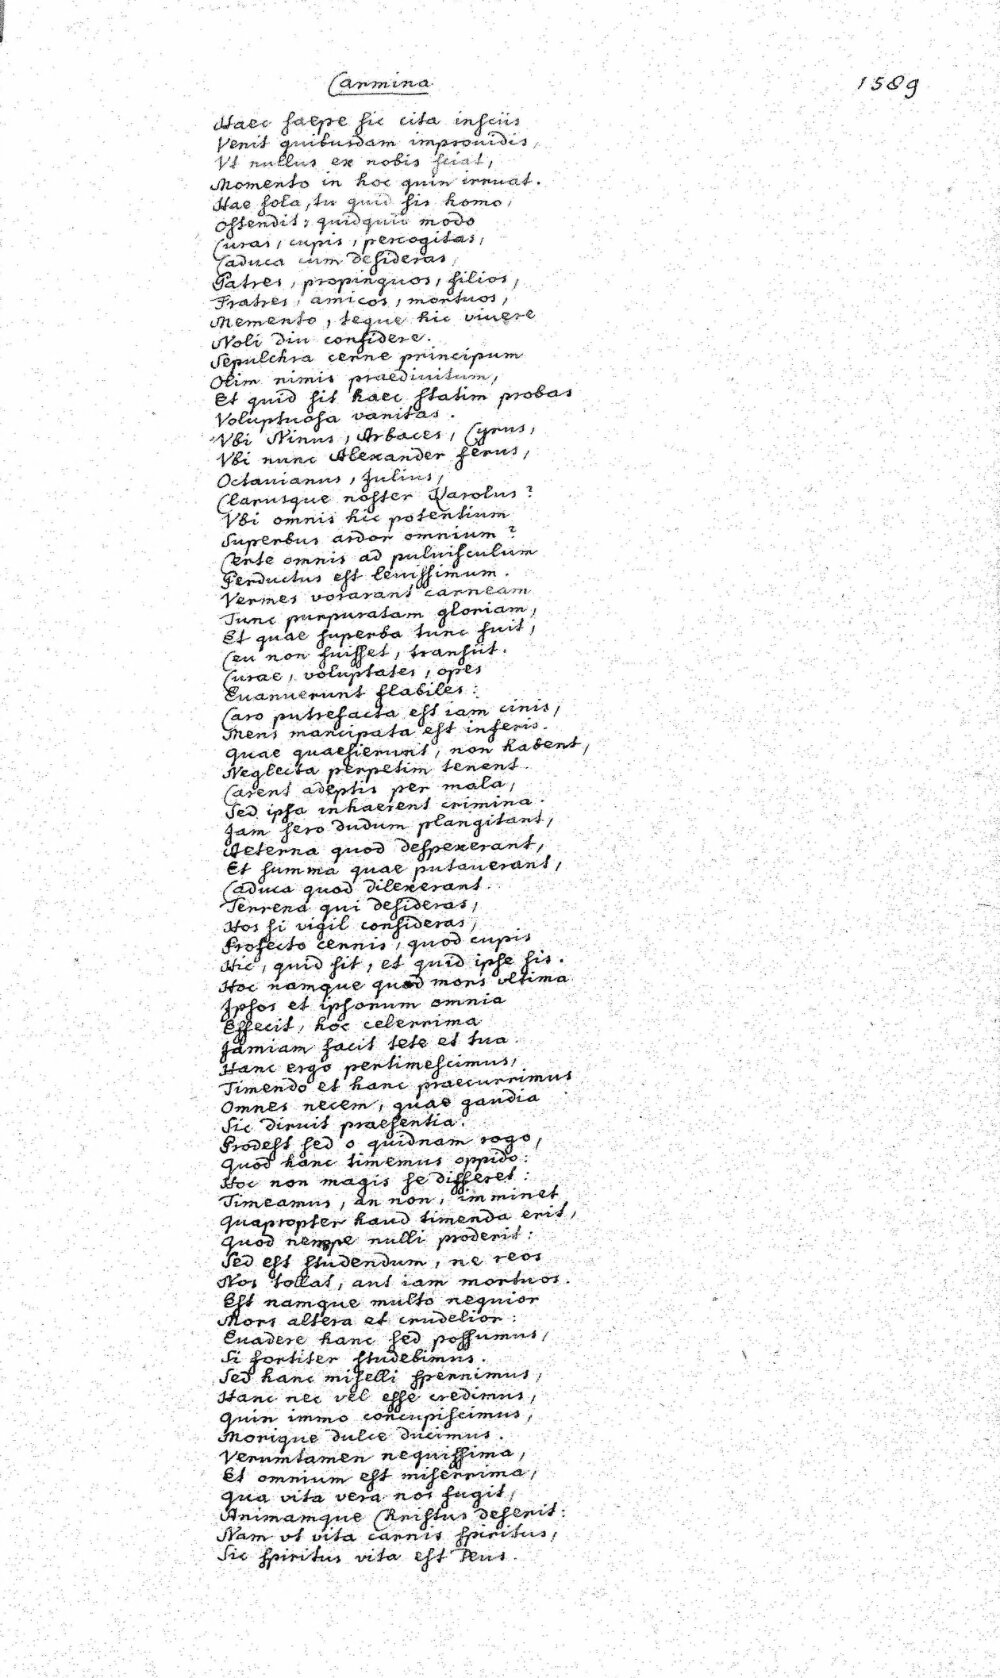 Carmina
1589
Haec saepe sic cita insciis
Venit quibusdam improuidis,
Vt nullus ex nobis sciat,
Momento in hoc quin irruat.
Hae sola, tu quid sis homo,
Ostendit: quidquid modo
Curas, cupis, percogitas,
Caduca cum desideras,
Patres, propinquos, filios,
Fratres, amicos, mortuos,
Memento, teque hic viuere
Noli diu considere.
Sepulchra cerne principum
Olim nimis praediuitum,
Et quid sit haec statim probas
Voluptuosa vanitas.
Vbi Ninus, Arbaces, Cyrus,
Vbi nunc Alexander ferus,
Octauianus, Julius,
Clarusque noster Karolus?
Vbi omnis hic potentium
Superbus ardor omnium?
Certe omnis ad puluisculum
Perductus est leuissimum.
Vermes vorarant carneam
Tunc purpuratam gloriam,
Et quae superba tunc fuit,
Ceu non fuisset, transiit.
Curae, voluptates, opes
Euanuerunt flabiles:
Caro putrefacta est iam cinis,
Mens mancipata est inferis.
Quae quaesierunt, non habent,
Neglecta perpetim tenent.
Carent adeptis per mala,
Sed ipsa inhaerent crimina.
Jam sero dudum plangitant,
Aeterna quod despexerant,
Et summa quae putauerant,
Caduca quod dilexerant.
Terrena qui desideras,
Hos si vigil consideras,
Profecto cernis, quod cupis
Hic, quid sit, et quid ipse sis.
Hoc namque quod mors vltima
Jpsos et ipsorum omnia
Effecit, hoc celerrima
Jamiam facit tete et tua.
Hanc ergo pertimescimus,
Timendo et hanc praecurrimus
Omnes necem, quae gaudia
Sic diruit praesentia.
Prodest sed o quidnam rogo,
Quod hanc timemus oppido:
Hoc non magis se differet:
Timeamus, an non, imminet
Quapropter haud timenda erit,
Quod nempe nulli proderit:
Sed est studendum, ne reos
Nos tollat, aut iam mortuos.
Est namque multo nequior
Mors altera et crudelior:
Euadere hanc sed possumus,
Si fortiter studebimus.
Sed hanc miselli spernimus,
Hanc nec vel esse credimus,
Quin immo concupiscimus,
Morique dulce ducimus.
Verumtamen nequissima,
Et omnium est miserrima,
Qua vita vera nos fugit,
Animamque Christus deserit:
Nam vt vita carnis spiritus,
Sic spiritus vita est Deus.